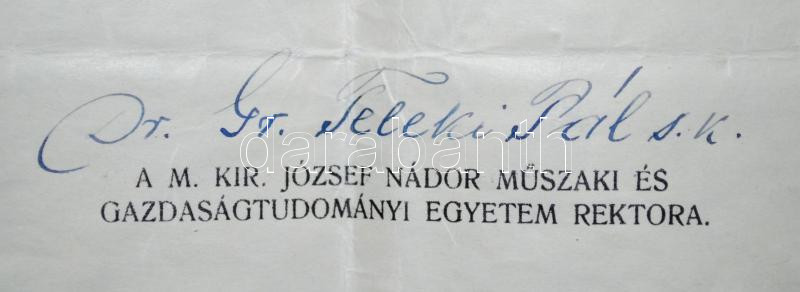 Dr. Gr. Teleki Pál s.k.
darabanth
A M. KIR. JÓZSEF NÁDOR MŰSZAKI ÉS
GAZDASÁGTUDOMÁNYI EGYETEM REKTORA.